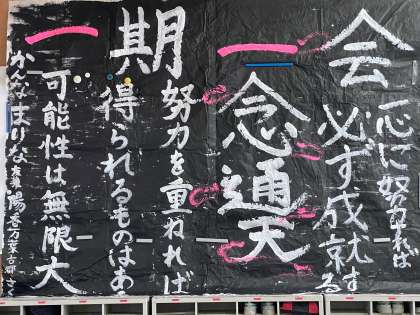 一期一会
一心に努力すれば
必ず成就する
一念通天
努力を重ねれば
得られるものはある
可能性は無限大
かんな まりな